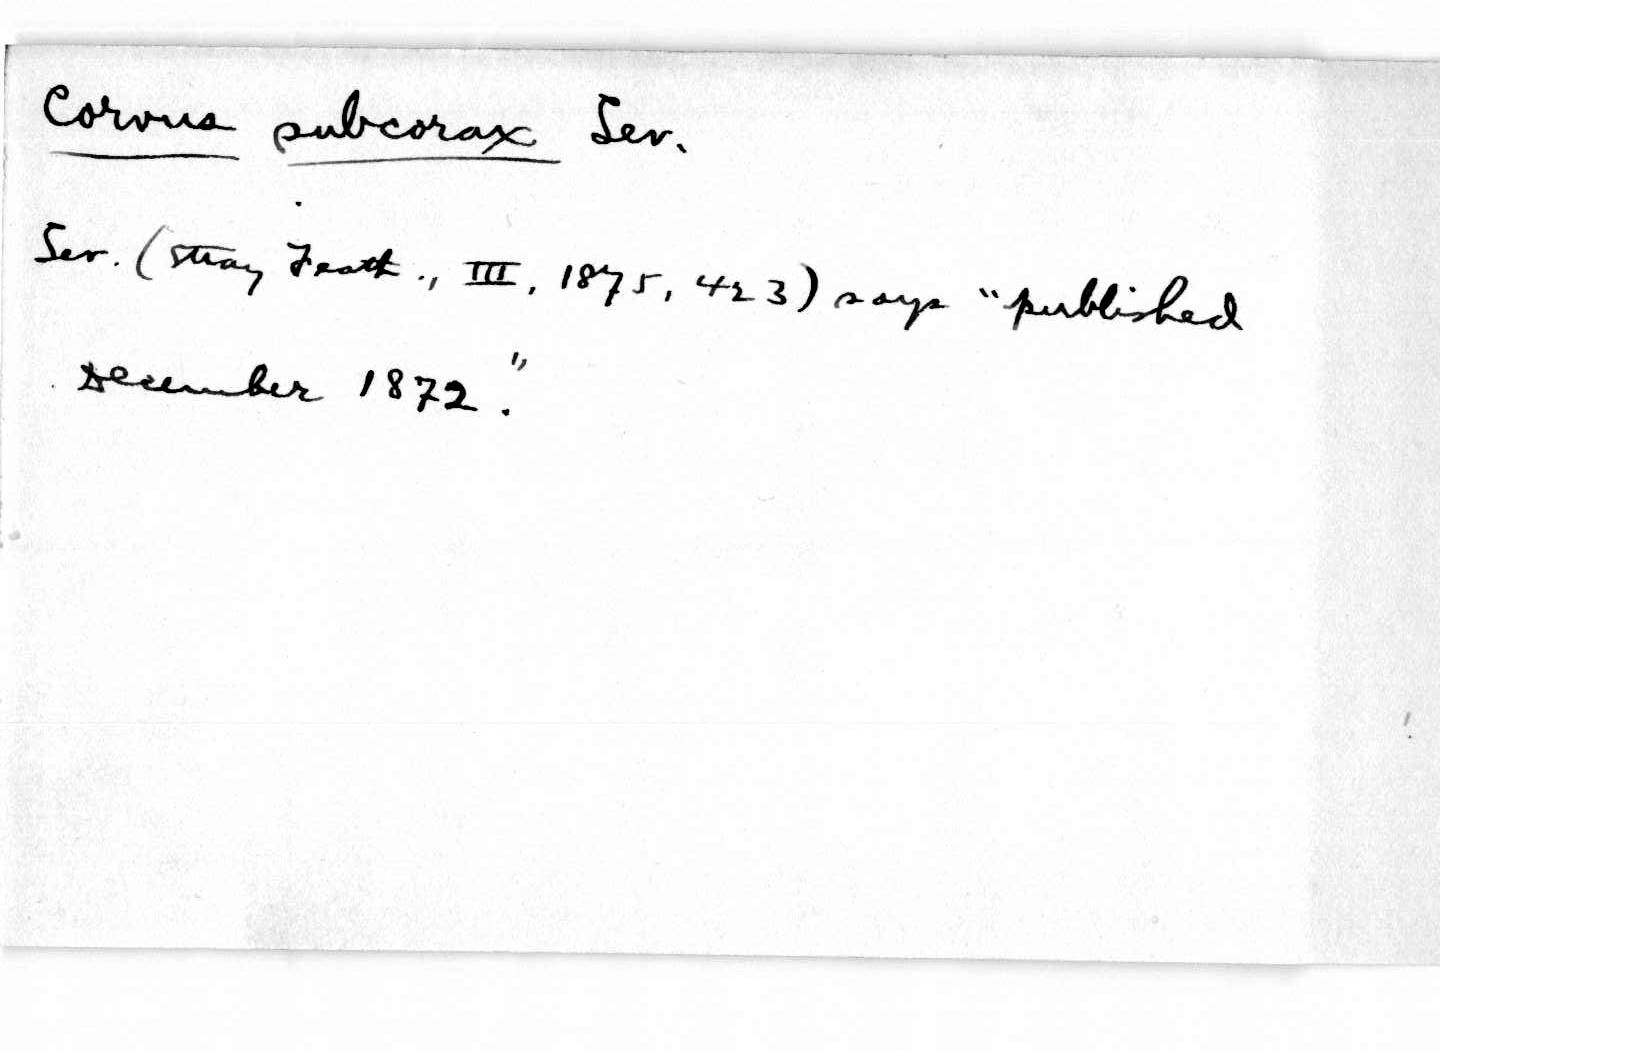 Corvus subcorax Sev.
Sev. (Stray Feath., III, 1875, 423) says "published
December 1872."